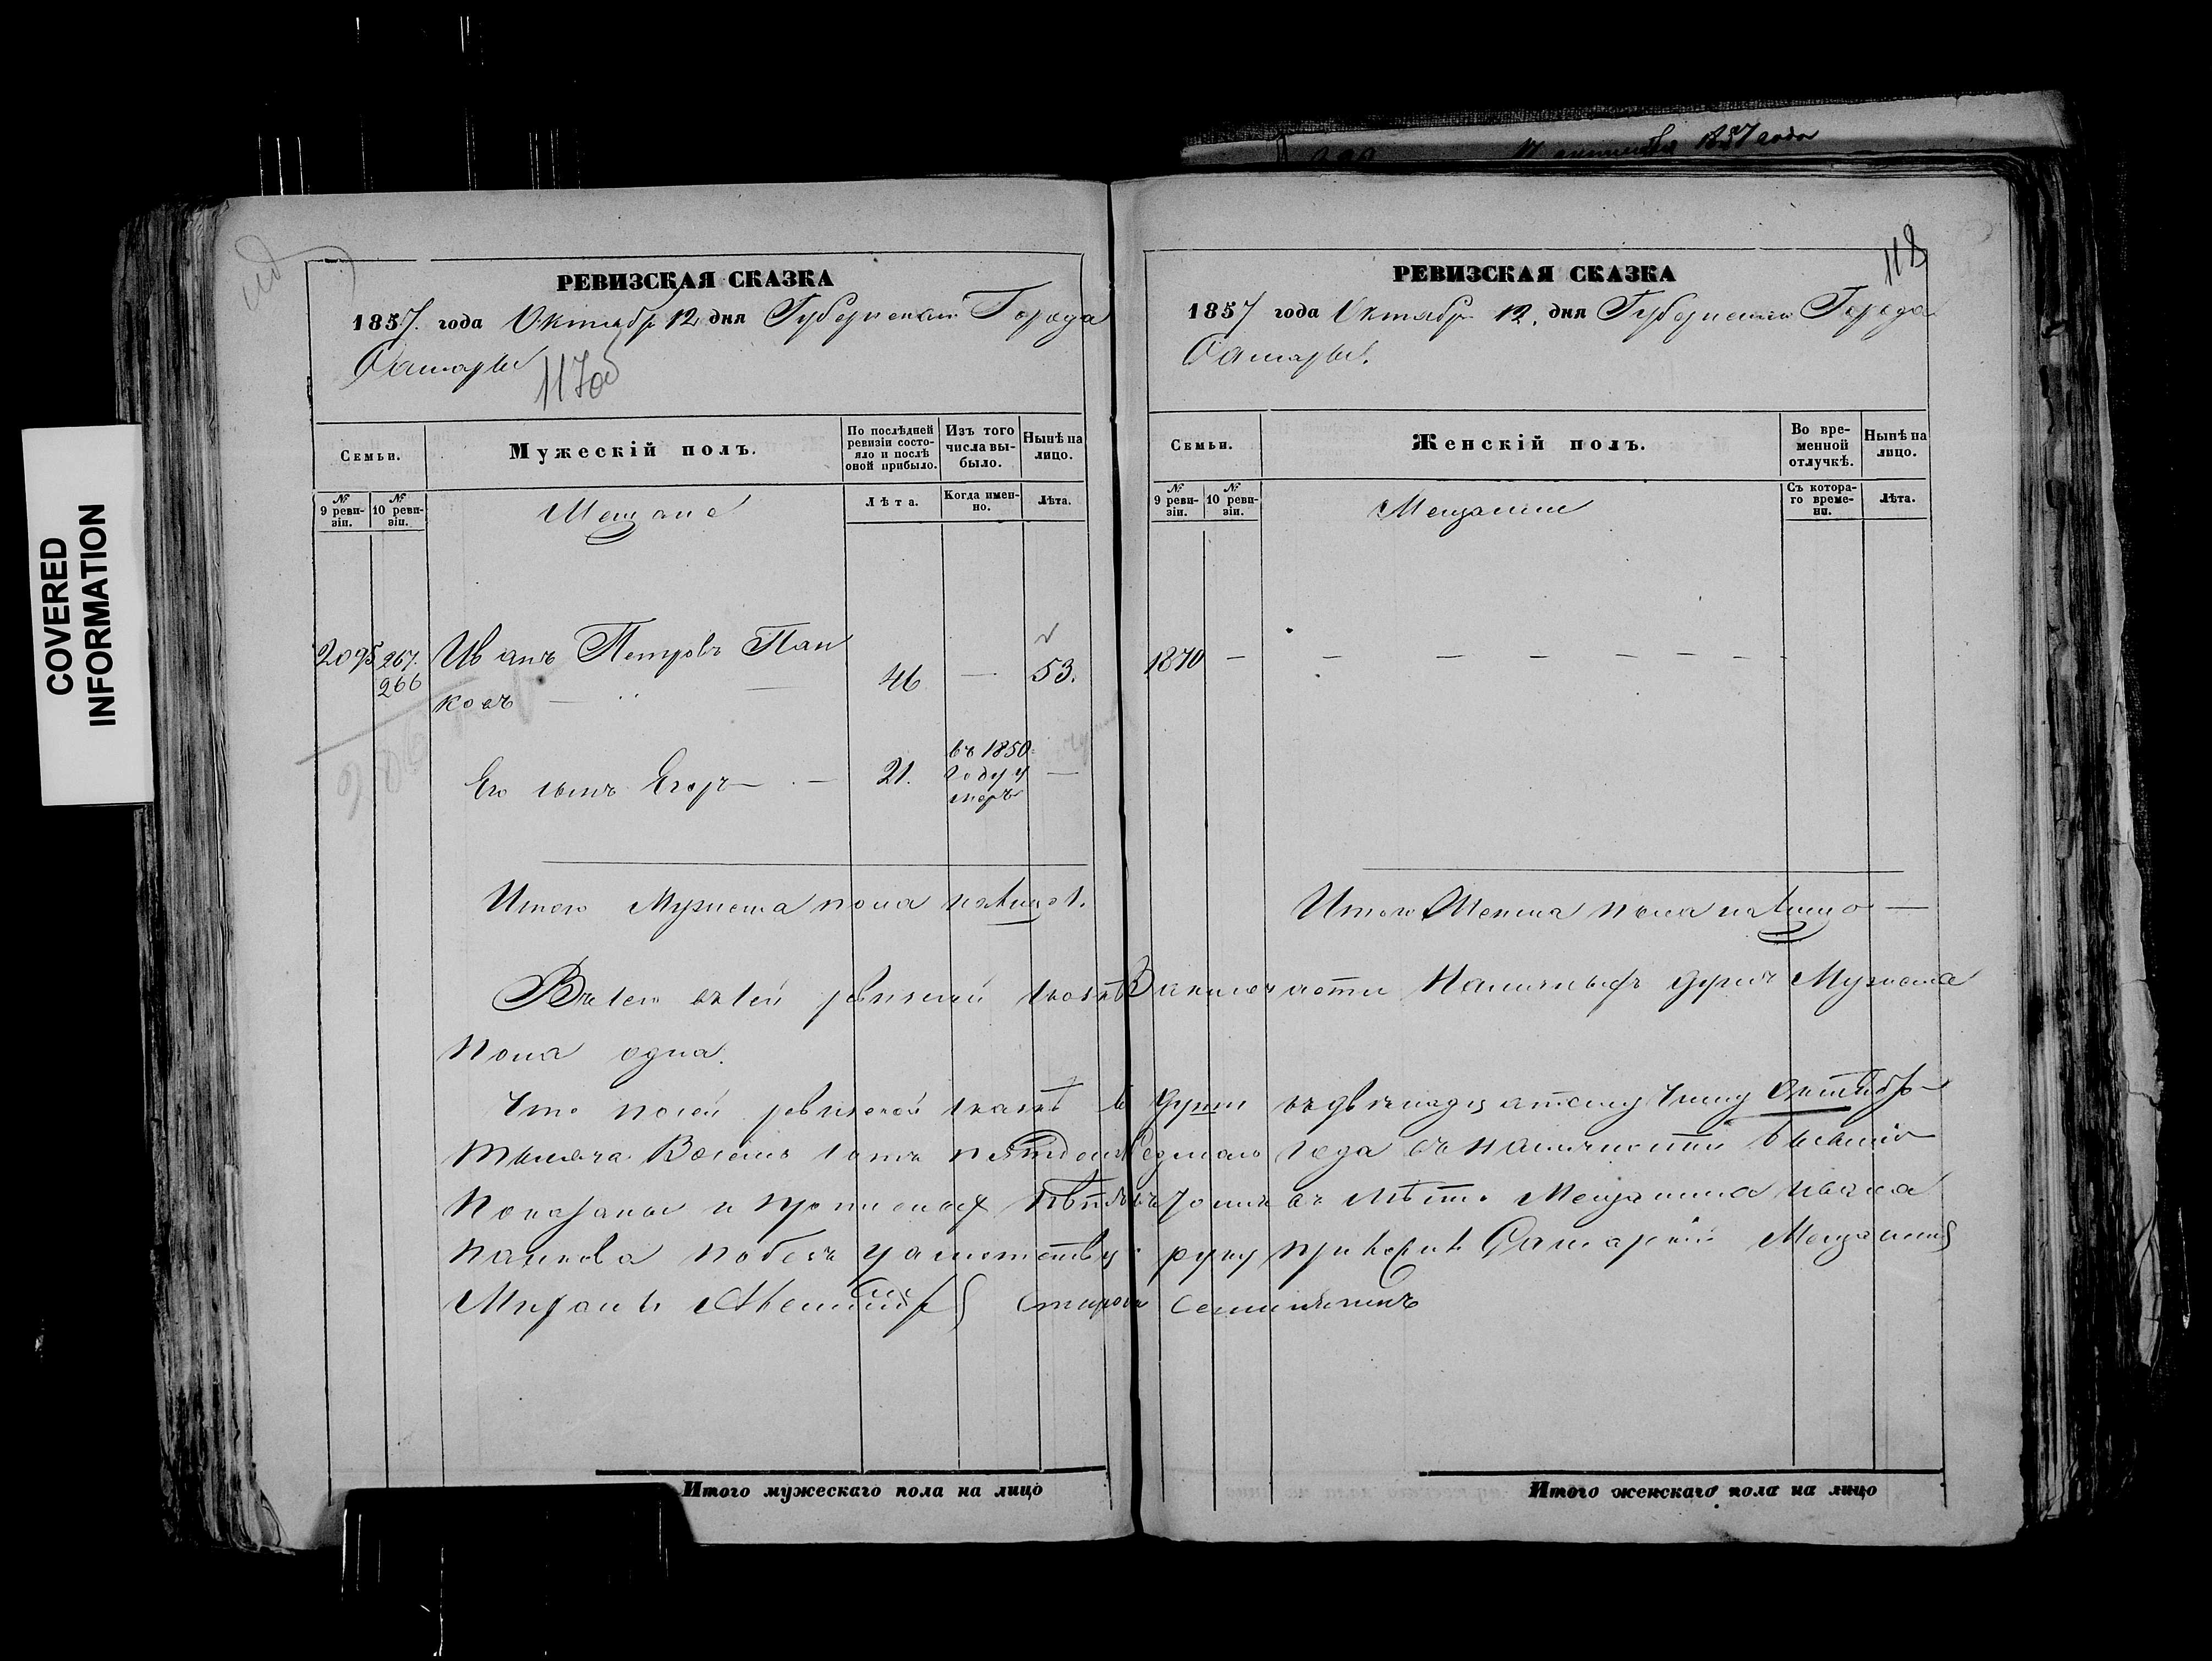 COVERED
INFORMATION
1857 года
РЕВИЗСКАЯ СКАЗКА
1857. года Октября 12 дня Губернскаго Города
Самары
117об
Семьи.
Мужескій полъ.
По послѣдней ревизіи состояло и послѣ оной прибыло.
Изъ того числа выбыло.
Нынѣ на лицо.
№ 9 ревизіи.
№ 10 ревизіи.
Мещане
Лѣта.
Когда именно.
Лѣта.
2095 267. Иванъ Петровъ Пан
266 ковъ — 46 — 53.
Его сынъ Егоръ — 21. въ 1850 году умеръ —
Итого Мужеска пола налицо 1.
РЕВИЗСКАЯ СКАЗКА
118
1857 года Октября 12. дня Губернскаго Города
Самары.
Семьи.
Женскій полъ.
Во временной отлучкѣ.
Нынѣ на лицо.
№ 9 ревизіи.
№ 10 ревизіи.
Мещане
Съ котораго времени.
Лѣта.
1870 — — — — — — —
Итого Женска пола налицо —
Всего въ сей ревизской сказкѣ Заключается Наличныхъ душъ Мужеска
пола одна.
Что по сей ревизской сказкѣ все души къ двенадцатому числу Октября
тысяча Восемь сотъ пятьдесятъ Седмаго года въ наличности бывшія
показаны и прописныхъ нѣтъ въ томъ въ мѣсто Мещанина Ивана
Панкова руку приложилъ Самарскій Мещанинъ
Итого мужескаго пола на лицо
Итого женскаго пола на лицо